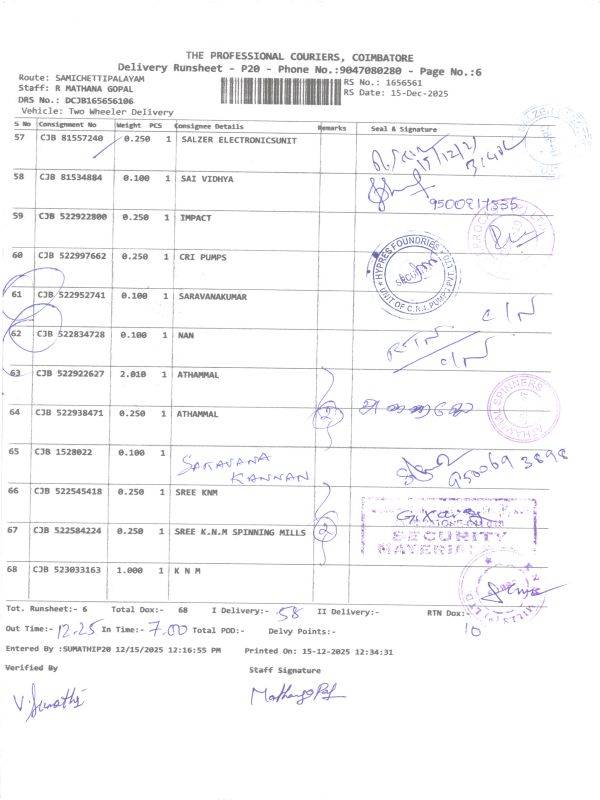 THE PROFESSIONAL COURIERS, COIMBATORE
Delivery Runsheet - P20 - Phone No.:9047080280 - Page No.:6
Route: SAMICHETTIPALAYAM
RS No.: 1656561
Staff: R MATHANA GOPAL
RS Date: 15-Dec-2025
DRS No.: DCJB165656106
Vehicle: Two Wheeler Delivery
S No Consignment No Weight PCS Consignee Details Remarks Seal & Signature
57 CJB 81557240 0.250 1 SALZER ELECTRONICSUNIT 15/12/2
58 CJB 81534884 0.100 1 SAI VIDHYA
59 CJB 522922800 0.250 1 IMPACT
60 CJB 522997662 0.250 1 CRI PUMPS HYPRES FOUNDRIES UNIT OF C.R.I. PUMPS PVT. LTD
61 CJB 522952741 0.100 1 SARAVANAKUMAR C/N
62 CJB 522834728 0.100 1 NAN RTN C/N
63 CJB 522922627 2.010 1 ATHAMMAL
64 CJB 522938471 0.250 1 ATHAMMAL 2 ATHAMMAL SPINNERS
65 CJB 1528022 0.100 1 SARAVANA KANNAN 950069 3898
66 CJB 522545418 0.250 1 SREE KNM
67 CJB 522584224 0.250 1 SREE K.N.M SPINNING MILLS 2 SECURITY MATERIAL
68 CJB 523033163 1.000 1 K N M
Tot. Runsheet:- 6 Total Dox:- 68 I Delivery:- 58 II Delivery:- RTN Dox:- 10
Out Time:- 12.25 In Time:- 7.00 Total POD:- Delvy Points:-
Entered By :SUMATHIP20 12/15/2025 12:16:55 PM Printed On: 15-12-2025 12:34:31
Verified By Staff Signature
V. Sumathi